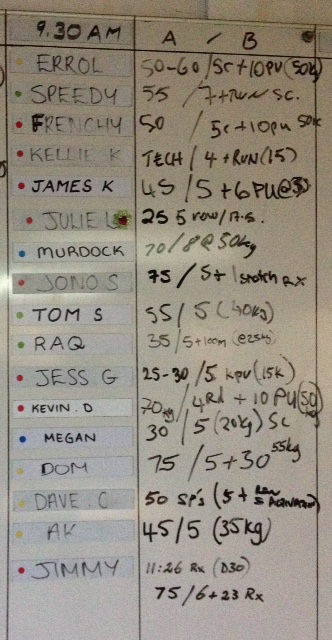 9.30 AM A / B
ERROL 50-60 / Sc + 10PU (50k)
SPEEDY 55 / 7 + RUN SC.
FRENCHY 50 / 5c + 10pu 50k
KELLIE K TECH / 4 + RUN (15)
JAMES K 45 / 5 + 6 PU@30
JULIE L 25 5 row / A.S.
MURDOCK 70 / 8 @ 50kg
JONO S 75 / 5 + 1 snatch RX
TOM S 55 / 5 (40kg)
RAQ 35 / 5 + 100m (@25kg)
JESS G 25-30 / 5 kpu (15k)
KEVIN. D 70kg / 4Rd + 10 PU (50)
MEGAN 30 / 5 (20kg) Sc
DOM 75 / 5 + 30 55kg
DAVE. C 50 SP's (5 +
AK 45 / 5 (35kg)
JIMMY 11:26 Rx (D30)
75 / 6 + 23 Rx